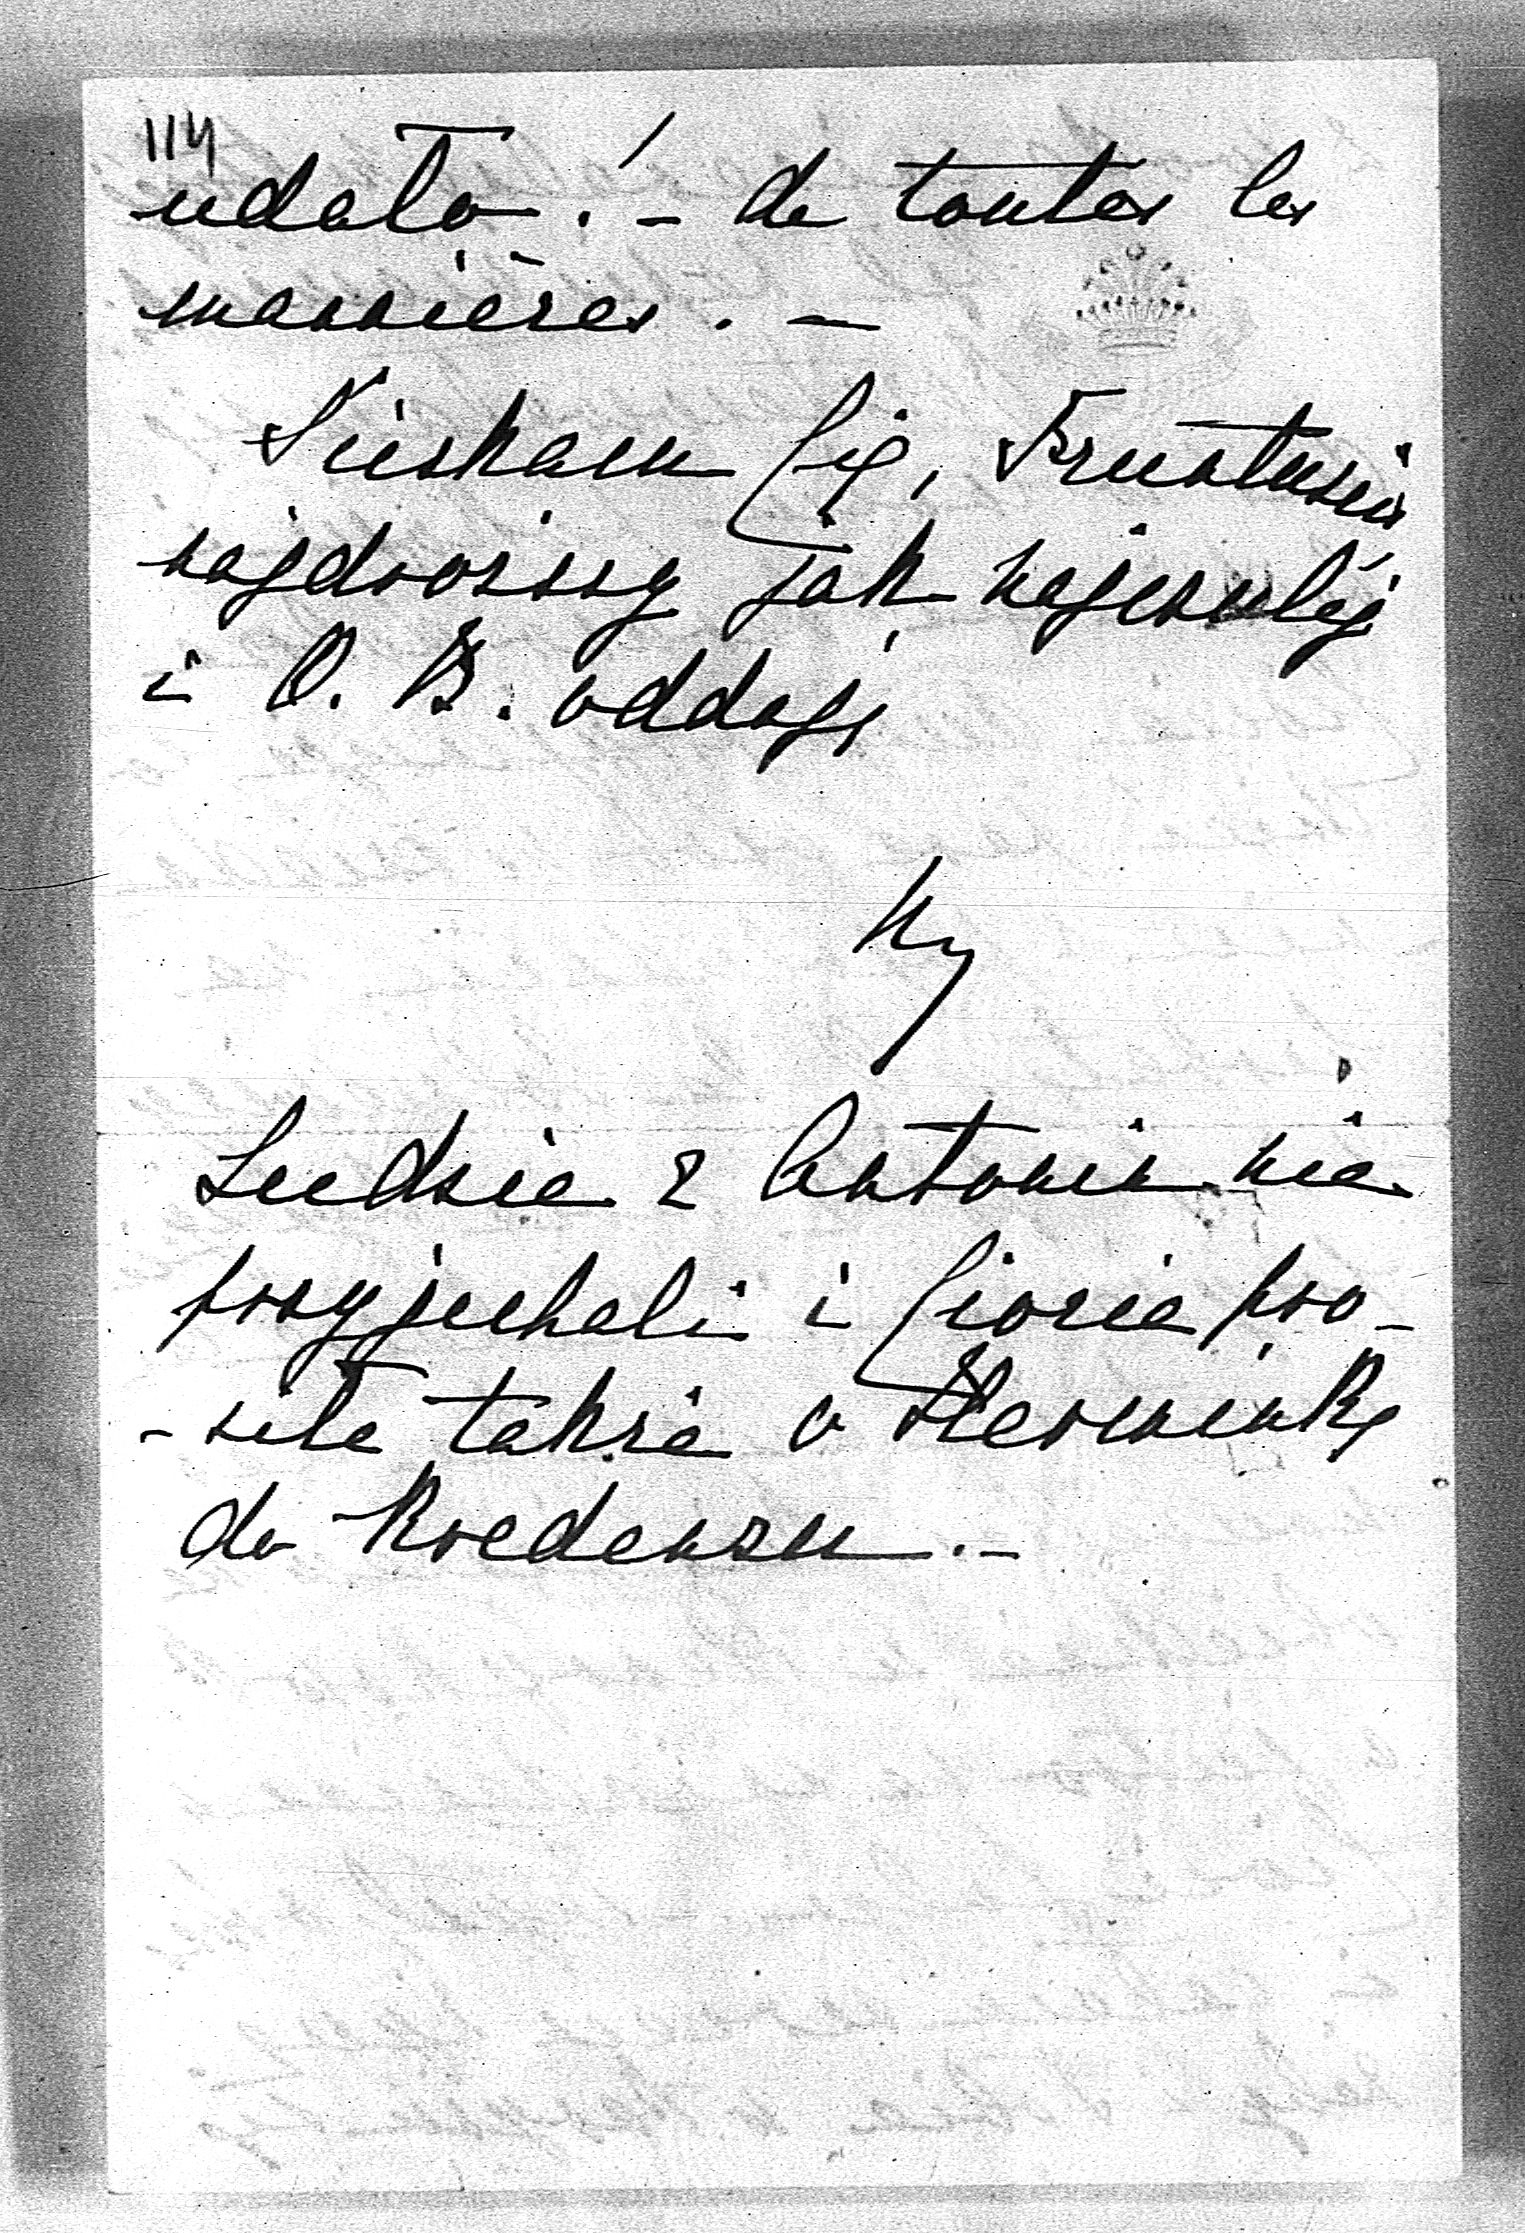 114
udało! – de toutes les
mannières. –
Sciskam Cię, Truntusiu
najdroższy jak najczulej
i O. B. oddaję
Ny
Ludzie z Antonin nie
przyjechali i Ciocia pro-
-siła także o
do Kredensu. –